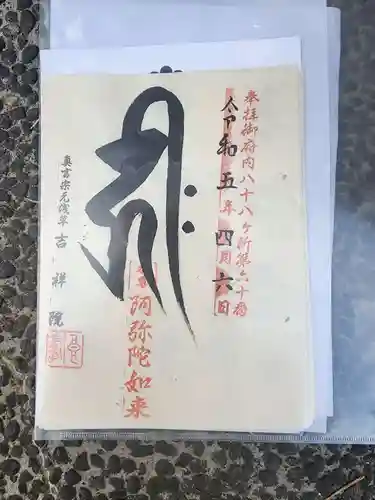 奉拝御府内八十八ヶ所第六十番
令和五年四月六日
本尊
阿弥陀如来
真言宗元浅草
吉祥院